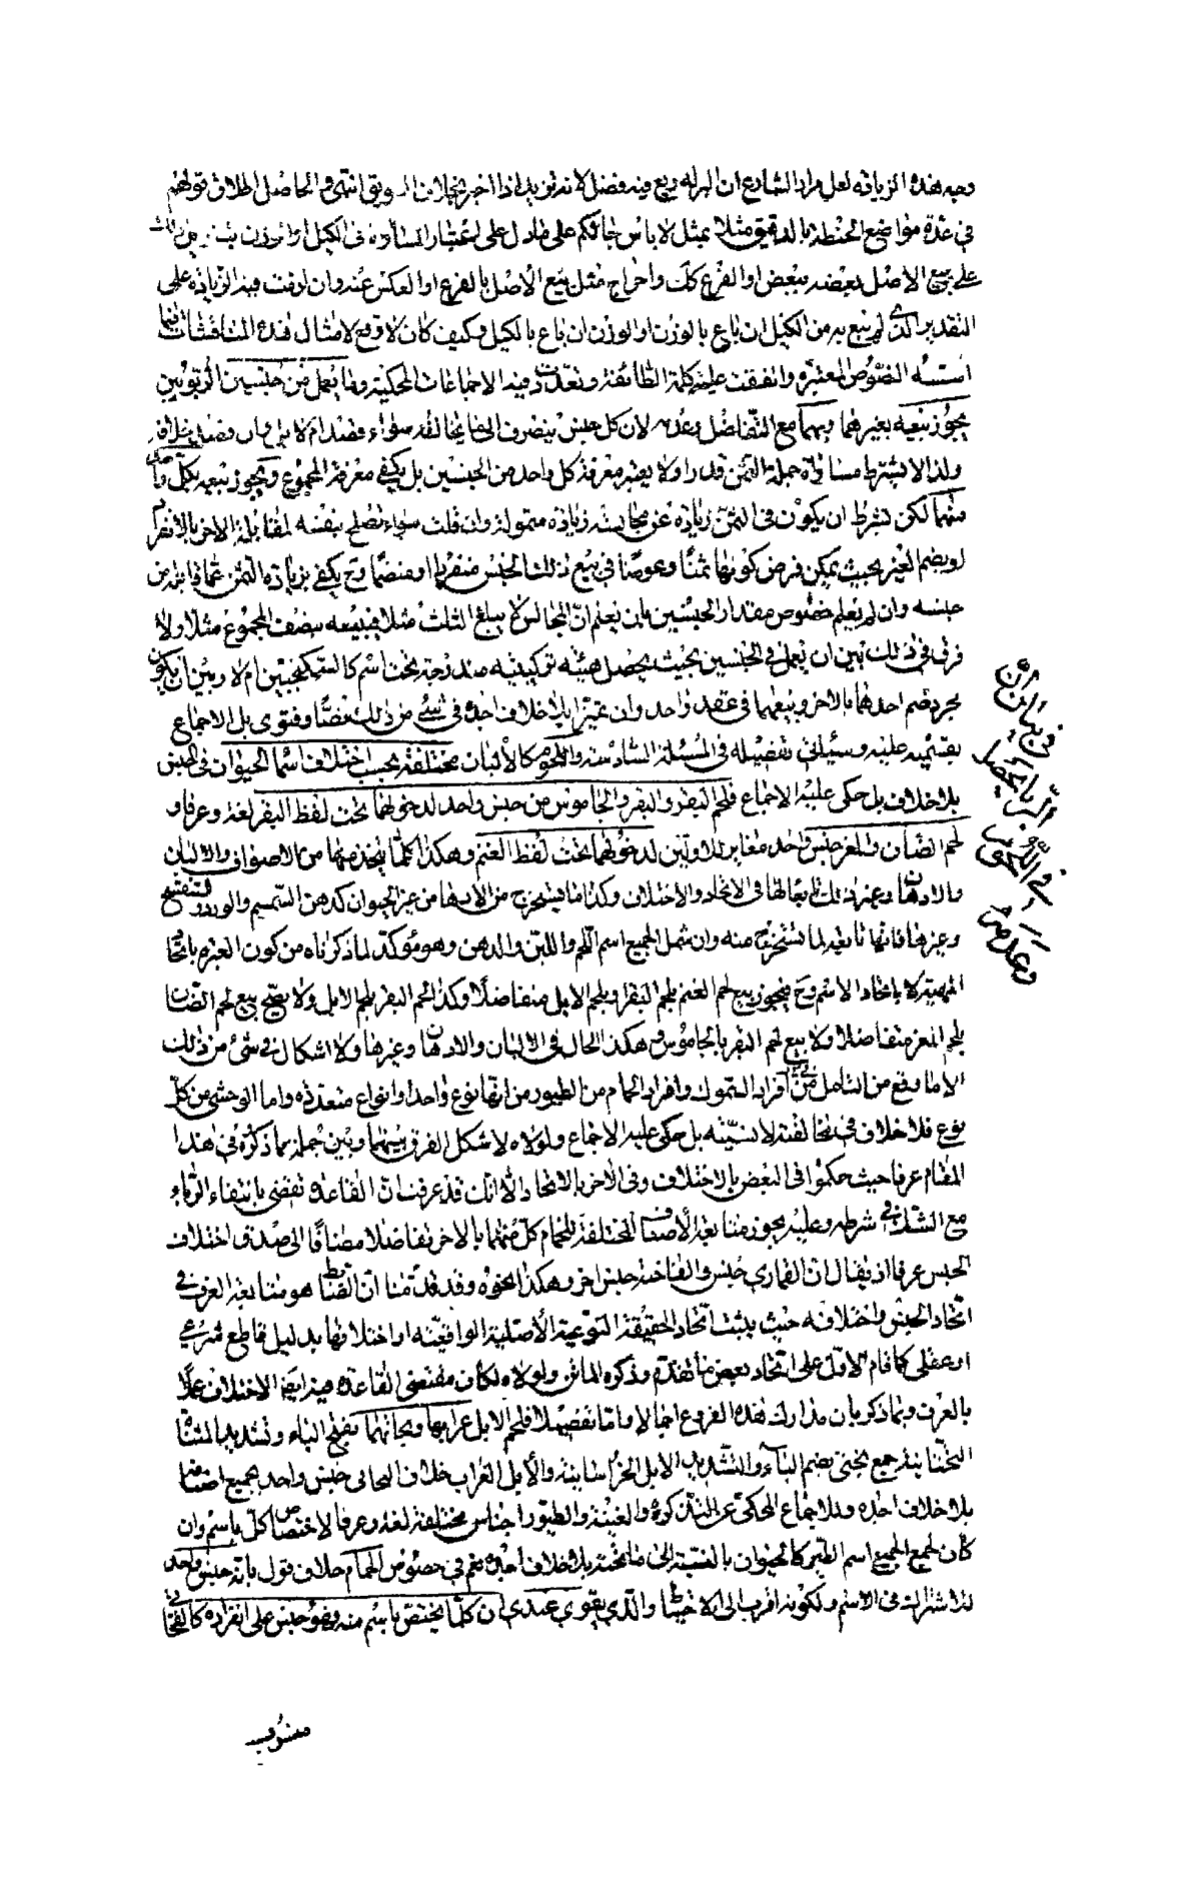 وجه هذه الزيادة لعل مراد الشارع ان البر له ريع فيه فضل لانه انتهى والحاصل اطلاق قولهم
في عدة مواضع الحنطة بالدقيق مثلا بمثل لا باس حاكم على ما دل على اعتبار المساواة في الكيل او الوزن
على بيع الاصل بعضه ببعض او الفرع كك واخراج مثل بيع الاصل بالفرع او العكس عنه وان لزمت فيه الزيادة على
التقدير الذي لم يبع به من الكيل ان باع بالوزن او الوزن ان باع بالكيل وكيف كان لا وقع لامثال هذه المناقشات فيما
اسسه النصوص المعتبرة واتفقت عليه كلمة الطائفة وتعددت فيه الاجماعات المحكية وما يعمل من جنسين الربويين
يجوز بيعه بغيرهما وبهما مع التفاضل وعدمه لان كل جنس ينصرف الى ما يخالفه سواء قصد ام لا
ولذا لا يشترط مساواة جملة الثمن قدرا ولا يعتبر معرفة كل واحد من الجنسين بل يكفي معرفة المجموع ويجوز بيعه بكل واحد
منهما لكن بشرط ان يكون في الثمن زيادة عن مجانسه زيادة متمولة وان قلت سواء تصلح بنفسه لمقابلة الاخر بالانفراد
او بضم الغير بحيث يمكن فرض كونها ثمنا وعوضا في بيع ذلك الجنس منفردا او منضما وح يكفي زيادة الثمن عما فيه من
جنسه وان لم يعلم خصوص مقدار الجنسين بان يعلم ان المجانس لا يبلغ الثلث مثلا فيبيعه بنصف المجموع مثلا ولا
فرق في ذلك بين ان يعمل في الجنسين بحيث يحصل هيئة تركيبية مندرجة تحت اسم كالسكنجبين ام لا وبين ان يكون
بمجرد ضم احدهما بالاخر وبيعهما في عقد واحد وان تميزا بلا خلاف اجده في شيء من ذلك نصا وفتوى بل الاجماع
بقسميه عليه وسيأتي تفصيله في المسئلة السادسة واللحوم كالالبان مختلفة بحسب اختلاف اسماء الحيوان في الجنس
بلا خلاف بل حكى عليه الاجماع فلحم البقر والجاموس من جنس واحد لدخولهما تحت لفظ البقر لغة وعرفا و
لحم الضأن والمعز جنس واحد مغاير للاولين لدخولهما تحت لفظ الغنم وهكذا كلما يتخذ منها من الاصواف والالبان
والادهان وغير ذلك تابعا لها في الاتحاد والاختلاف وكذا ما يستخرج من الادهان من غير الحيوان كدهن السمسم والورد والبنفسج
وغيرها فانها تابعة لما تستخرج منه وان شمل الجميع اسم اللحم واللبن والدهن وهو مؤكد لما ذكرناه من كون العبرة باتحاد
المهية لا باتحاد الاسم وح فيجوز بيع لحم الغنم بلحم البقر وبلحم الابل متفاضلا وكذا لحم البقر بلحم الابل ولا يصح بيع لحم الضان
بلحم المعز متفاضلا ولا بيع لحم البقر بالجاموس وهكذا الحال في الالبان والادهان وغيرها ولا اشكال في شئ من ذلك
الا ما وقع من التامل في افراد السموك وافراد الحمام من الطيور من انها نوع واحد او انواع متعددة واما الوحشي من كل
نوع فلا خلاف في مخالفته لانسيته بل حكى عليه الاجماع ولولاه لاشكل الفرق بينهما وبين جملة مما ذكره في هذا
المقام عرفا حيث حكموا في البعض بالاختلاف وفي الاخر بالاتحاد الا انك قد عرفت ان القاعدة تقضي بانتفاء الرباء
مع الشك في شرطه وعليه يجوز مبايعة الاصناف المختلفة للحمام كل منهما بالاخر تفاضلا مضافا الى صدق اختلاف
الجنس عرفا اذ يقال ان القماري جنس والفاخته جنس اخر وهكذا نحوه وقد قدمنا ان الضابط هو متابعة العرف في
اتحاد الجنس واختلافه حيث يثبت اتحاد الحقيقة النوعية الاصلية الواقعية او اختلافها بدليل قاطع شرعي
او عقلي كما قام الاول على اتحاد بعض ما تقدم وذكره الماتن ولولاه لكان مقتضى القاعدة فيه ايضا الاختلاف عملا
بالعرف وبما ذكر بان مدارك هذه الفروع اجمالا واما تفصيلا فلحم الابل عرابها وبخاتيها بفتح الباء وتشديد المثناة
التحتانية جمع بختي بضم الباء والتشديد الابل الخراسانية والابل العراب خلاف البخاتي جنس واحد بجميع اصنافها
بلا خلاف اجده وللاجماع المحكي عن التذكرة والغنية والطيور اجناس مختلفة لغة وعرفا لاختصاص كل باسم وان
كان لجمع الجميع اسم الطير كالحيوان بالنسبة الى ما تحته بلا خلاف اجده نعم في خصوص الحمام خلاف قول بانه جنس واحد
لاشتراكه في الاسم ولكونه اقرب الى الاحتياط والذي يقوى عندي ان كلما يختص باسم منه فهو جنس على انفراده كالفخاتي
في بيان ان
الربا يحصل
في اللحوم
وعدمه
منسوب